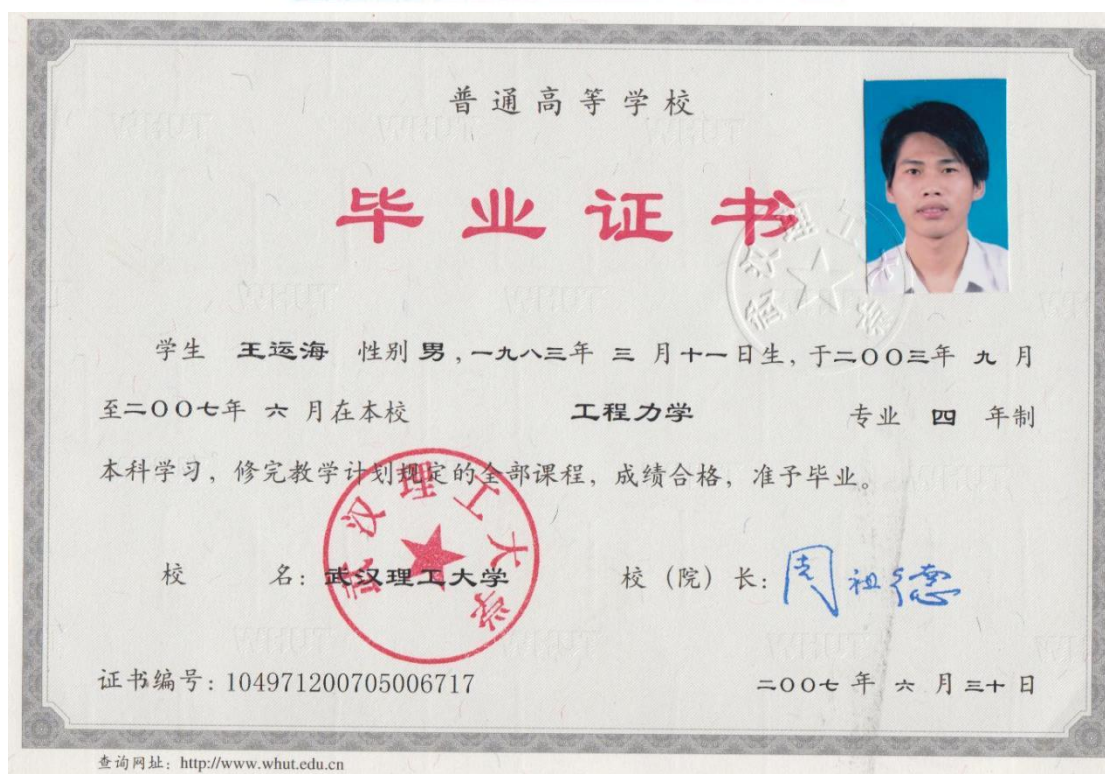 普通高等学校
毕业证书
学生 王运海 性别 男，一九八三年 三 月十一日生，于二〇〇三年 九 月
至二〇〇七年 六 月在本校 工程力学 专业 四 年制
本科学习，修完教学计划规定的全部课程，成绩合格，准予毕业。
校 名：武汉理工大学 校（院）长：周祖德
武汉理工大学
武汉理工大学
证书编号：104971200705006717 二〇〇七 年 六 月 三十 日
查询网址：http://www.whut.edu.cn